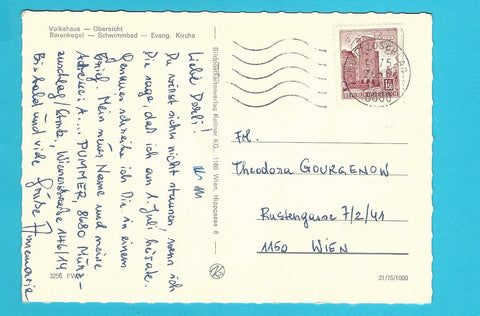 Volkshaus — Übersicht
Bärenkogel — Schwimmbad — Evang. Kirche
Liebe Dorli!
Du wirst sicher nicht staunen, wenn ich
Dir sage, daß ich am 1. Juli heirate.
Genaues schreibe ich Dir in einem
Brief. Mein neuer Name und meine
Adresse: A.... PUMMER, 8680 Mürz-
zuschlag/Stmk, Wienerstraße 146/14
Bis bald und viele Grüße Annemarie
3256 FW
Bildpostkartenverlag Kellner KG., 1160 Wien, Hippgasse 6
8680
Frl.
Theodora GOURGENOW
Rustengasse 7/2/41
1150 WIEN
21/75/1000